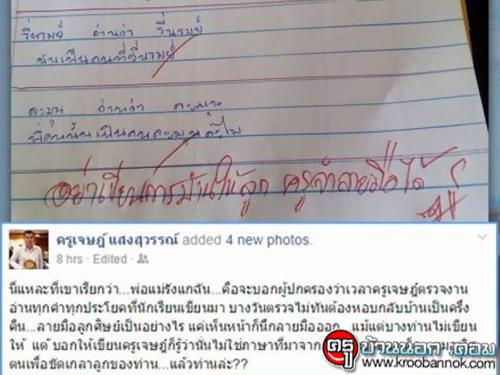 รื่นรมย์ อ่านว่า รื่นรมย์
ฉันเป็นคนที่รื่นรมย์
ละมุน อ่านว่า ละมุน
อย่าเขียนการบ้านให้ลูก ครูจำลายมือได้
ครูเจษฎ์ แสงสุวรรณ์ added 4 new photos.
8 hrs · Edited ·
นี่แหละที่เขาเรียกว่า...พ่อแม่รังแกฉัน...คือจะบอกผู้ปกครองว่าเวลาครูเจษฎ์ตรวจงาน
อ่านทุกคำทุกประโยคที่นักเรียนเขียนมา บางวันตรวจไม่ทันต้องหอบกลับบ้านเป็นครึ่ง
คืน...ลายมือลูกศิษย์เป็นอย่างไร แค่เห็นหน้าก็นึกลายมือออก.. แม้แต่บางท่านไม่เขียน
ให้ แต่ บอกให้เขียนครูเจษฎ์ก็รู้ว่านั่นไม่ใช่ภาษาที่มาจาก
ตนเพื่อขัดเกลาลูกของท่าน...แล้วท่านล่ะ??
ครูบ้านนอก.คอม
www.kroobannok.com